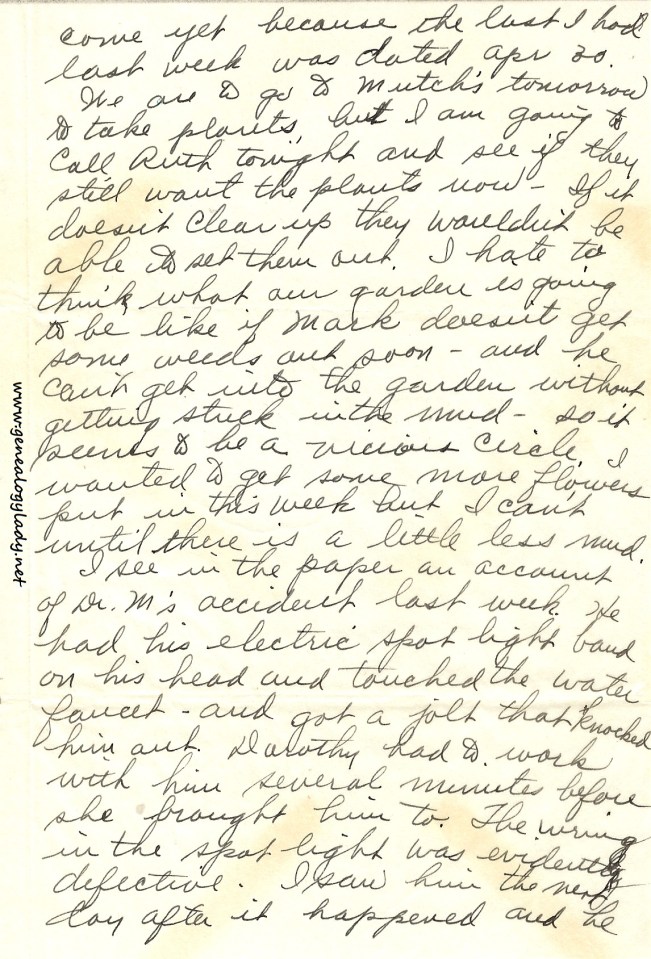 come yet because the last I had
last week was dated apr 30.
We are to go to Mutch's tomorrow
to take plants, but I am going to
Call Ruth tonight and see if they
still want the plants now - If it
doesn't clear up they wouldn't be
able to set them out. I hate to
think what our garden is going
to be like if Mark doesn't get
some weeds out soon - and he
can't get into the garden without
getting stuck in the mud - so it
seems to be a vicious circle. I
wanted to get some more flowers
put in this week but I can't
until there is a little less mud.
I see in the paper an account
of Dr. M's accident last week. He
had his electric spot light band
on his head and touched the water
faucet - and got a jolt that "knocked
him out. Dorothy had to work
with him several minutes before
she brought him to. The wiring
in the spot light was evidently
defective. I saw him the next
day after it happened and he
www.genealogylady.net